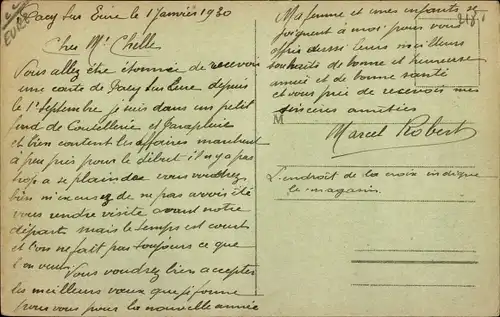 Pacy sur Eure le 1 Janvier 1930
Cher Mr Chelle
Vous allez être étonnée de recevoir
une carte de Pacy sur Eure depuis
le 1er septembre je suis dans un petit
fond de Coutellerie et Parapluie
et bien content les affaires marchent
à peu près pour le début il n'y a pas
trop a se plaindre vous voudrez
bien m'excusez de ne pas avoir été
vous rendre visite avant notre
départ mais le temps est court
et l'on ne fait pas toujours ce que
l'on veut.
Vous voudrez bien accepter
les meilleurs vœux que je forme
pour vous pour la nouvelle année
Ma femme et mes enfants se
joignent à moi pour vous
offrir aussi leurs meilleurs
souhaits de bonne et heureuse
année et de bonne santé
et vous prie de recevoir mes
sincères amitiés
M
Marcel Robert
L'endroit de la croix indique
le magasin.
EURE